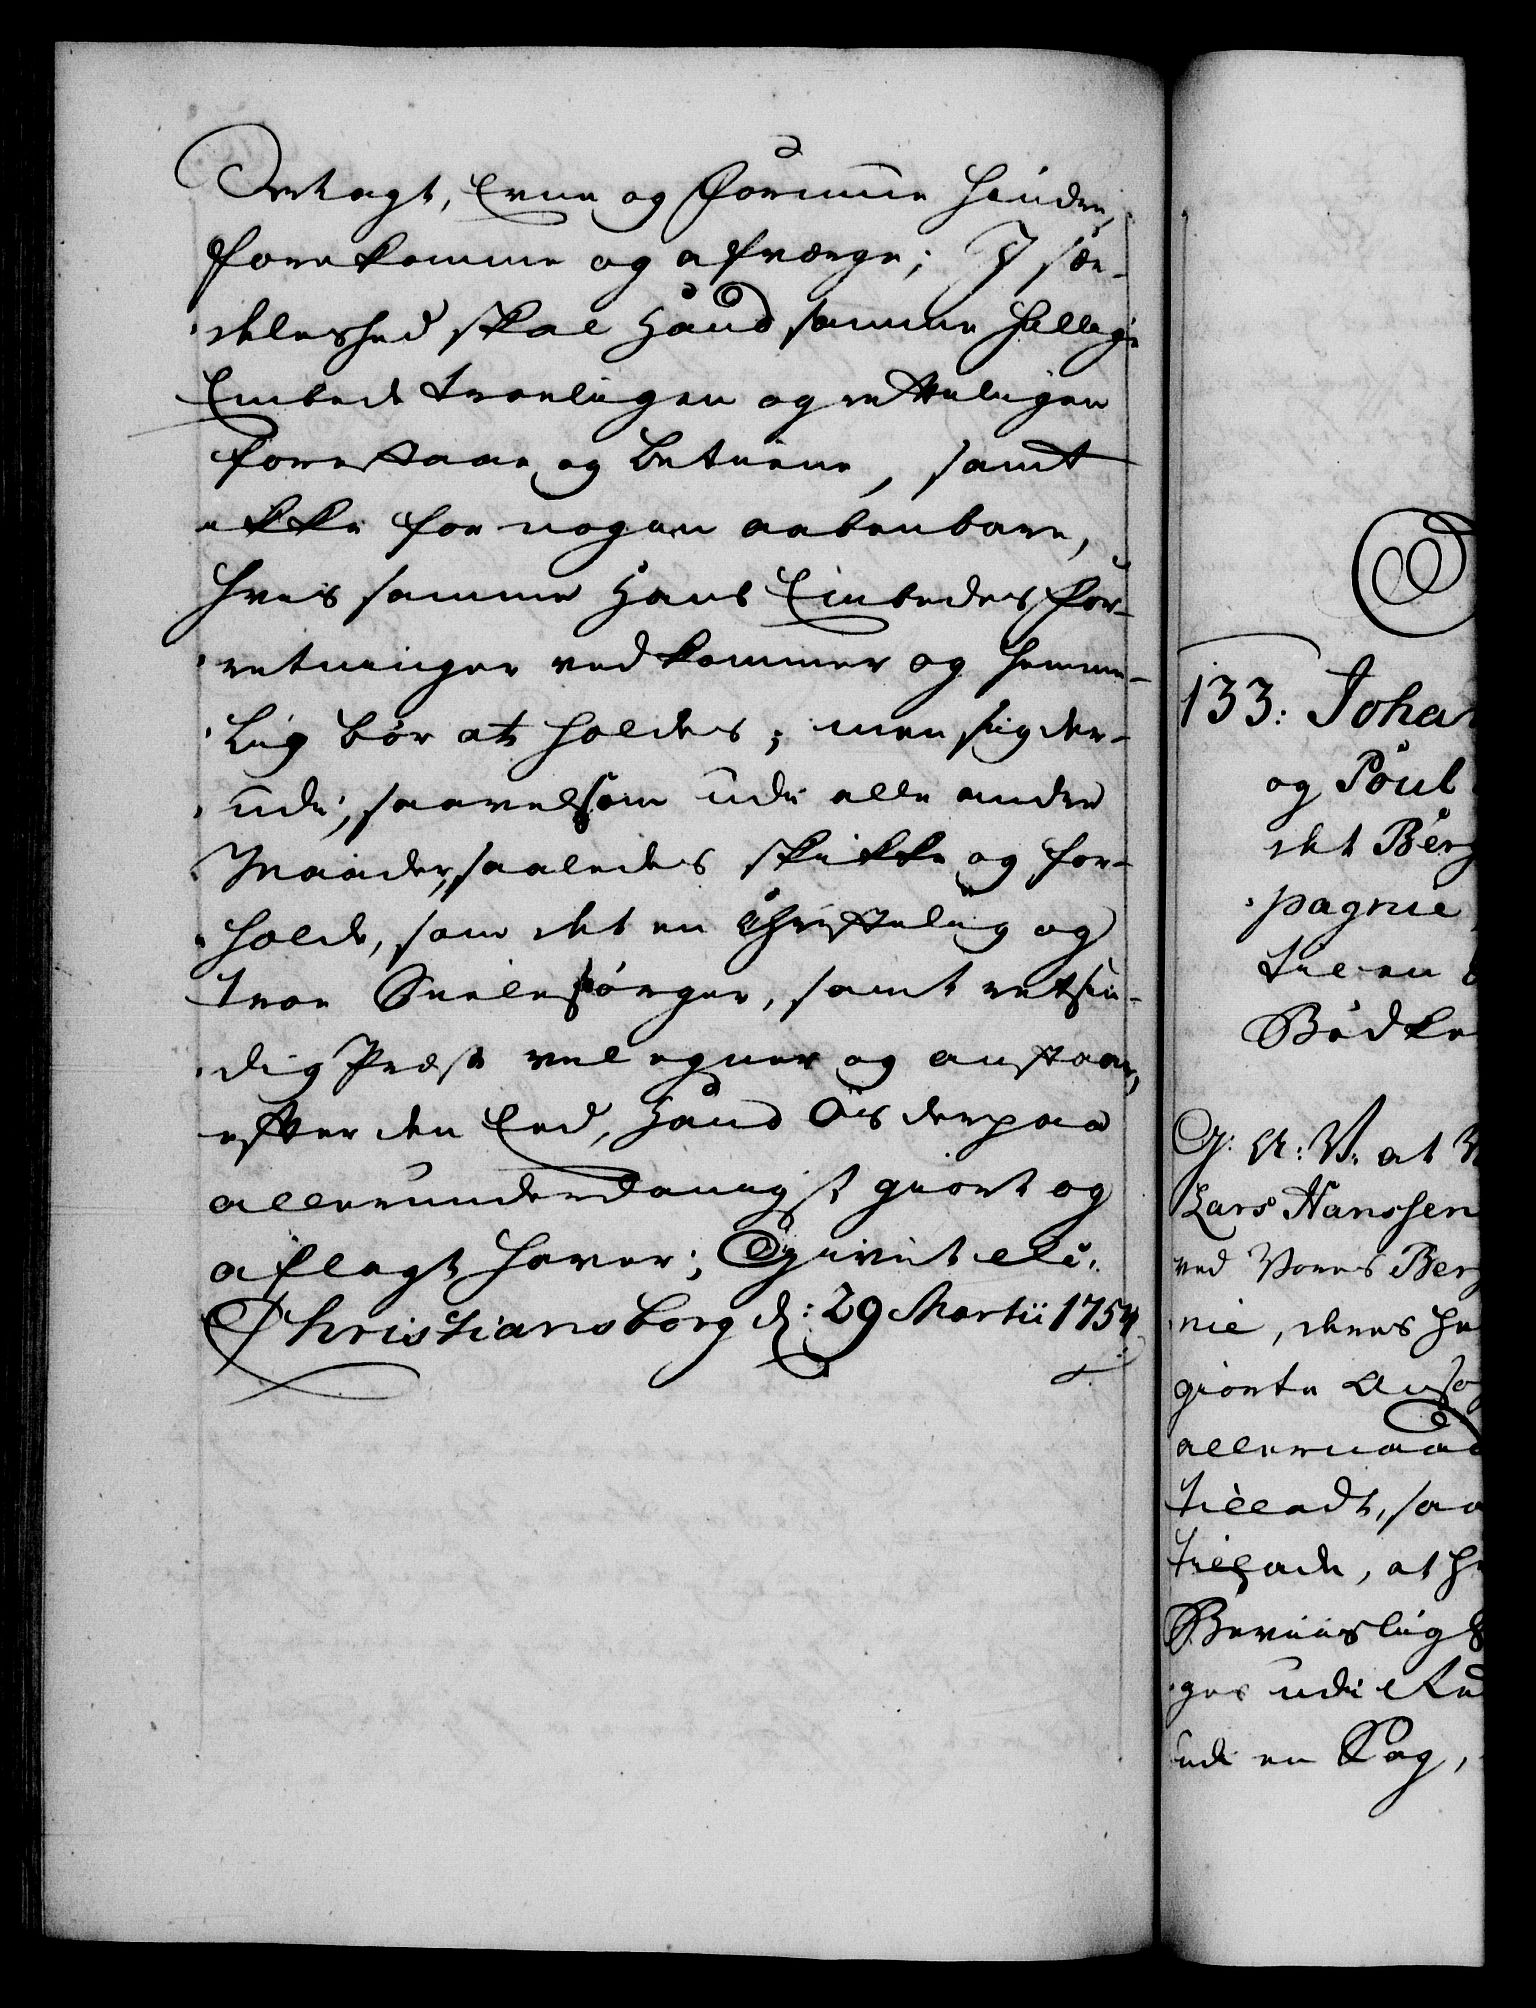 Overlagt, Evne og Formue hindre,
forekomme og afværge; I sær-
deleshed skal Hand samme hellige
Embede troeligen og retteligen
forestaae og betiene, samt
ikke for nogen aabenbare,
hvis samme Hans Embedes for-
retninger vedkommer og hemme-
lig bør at holdes; men sig der-
udi, saavelsom udi alle andre
Maader, saaledes skikke og for-
holde, som det en Christelig og
troe Siælesørger, samt retsin-
dig Præst vel egner og anstaar,
efter den Eed, Hand Os derpaa
allerunderdanigst giort og
aflagt haver; Givet etc.
Christiansborg d: 29 Martii 1754
133: Joha
og Poul
det Berg
pagnie
til en
Bødke
G: A: V: at V
Lars Hanssen
ved Vores Berg
nie, deres he
giorte Ansø
allernaad
tilladt, saa
tillade, at h
Beviislig
ges udi
udi en Bog,